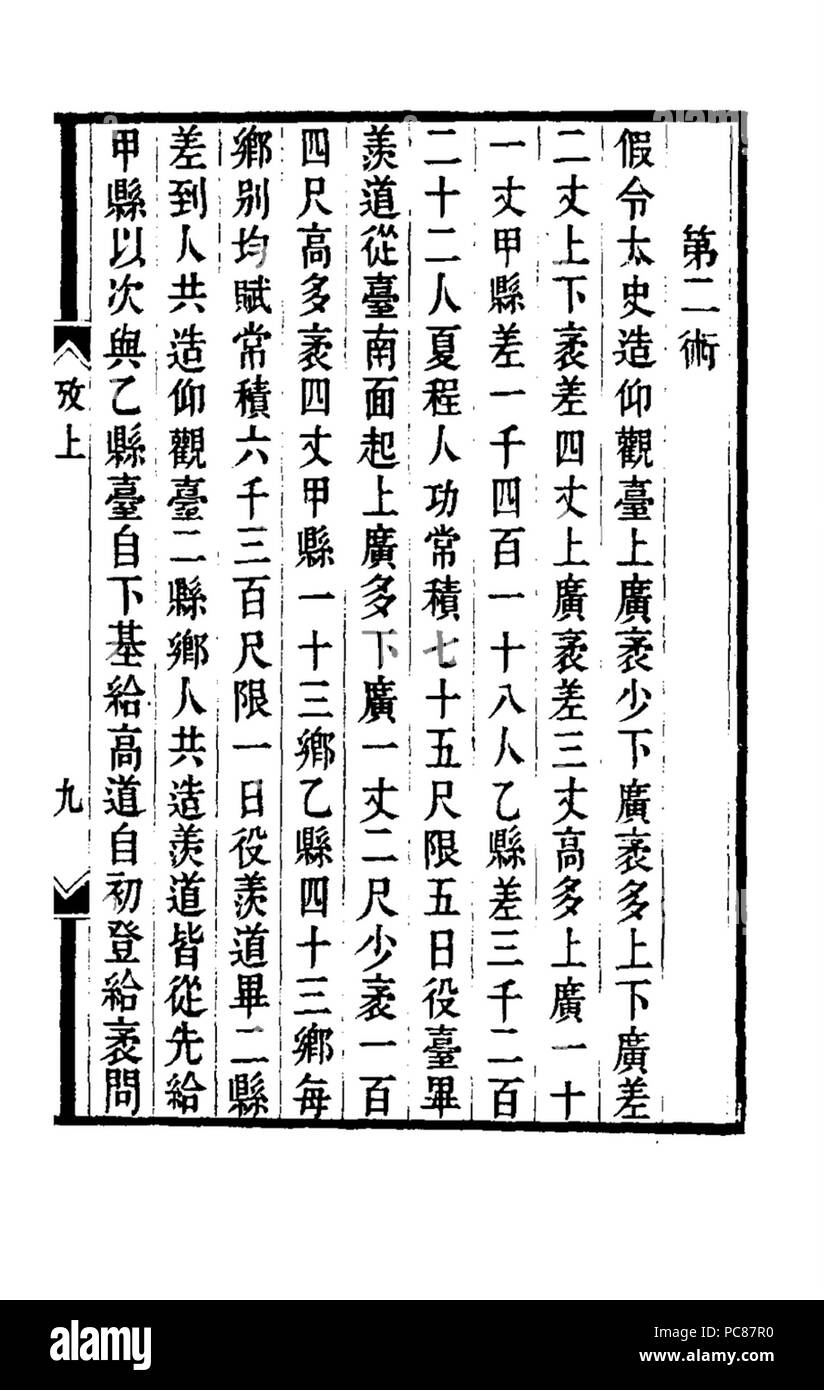 第二術
假令太史造仰觀臺上廣袤少下廣袤多上下廣差
二丈上下袤差四丈上廣袤差三丈高多上廣一十
一丈甲縣差一千四百一十八人乙縣差三千二百
二十二人夏程人功常積七十五尺限五日役臺畢
羨道從臺南面起上廣多下廣一丈二尺少袤一百
四尺高多袤四丈甲縣一十三鄉乙縣四十三鄉每
鄉別均賦常積六千三百尺限一日役羨道畢二縣
差到人共造仰觀臺二縣鄉人共造羨道皆從先給
甲縣以次與乙縣臺自下基給高道自初登給袤問
攷上
九
alamy
Image ID: PC87R0
www.alamy.com